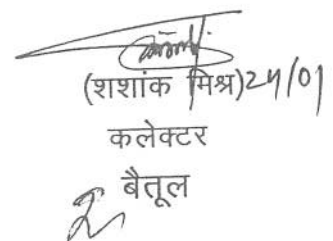 (शशांक मिश्र) 24/01
कलेक्टर
बैतूल